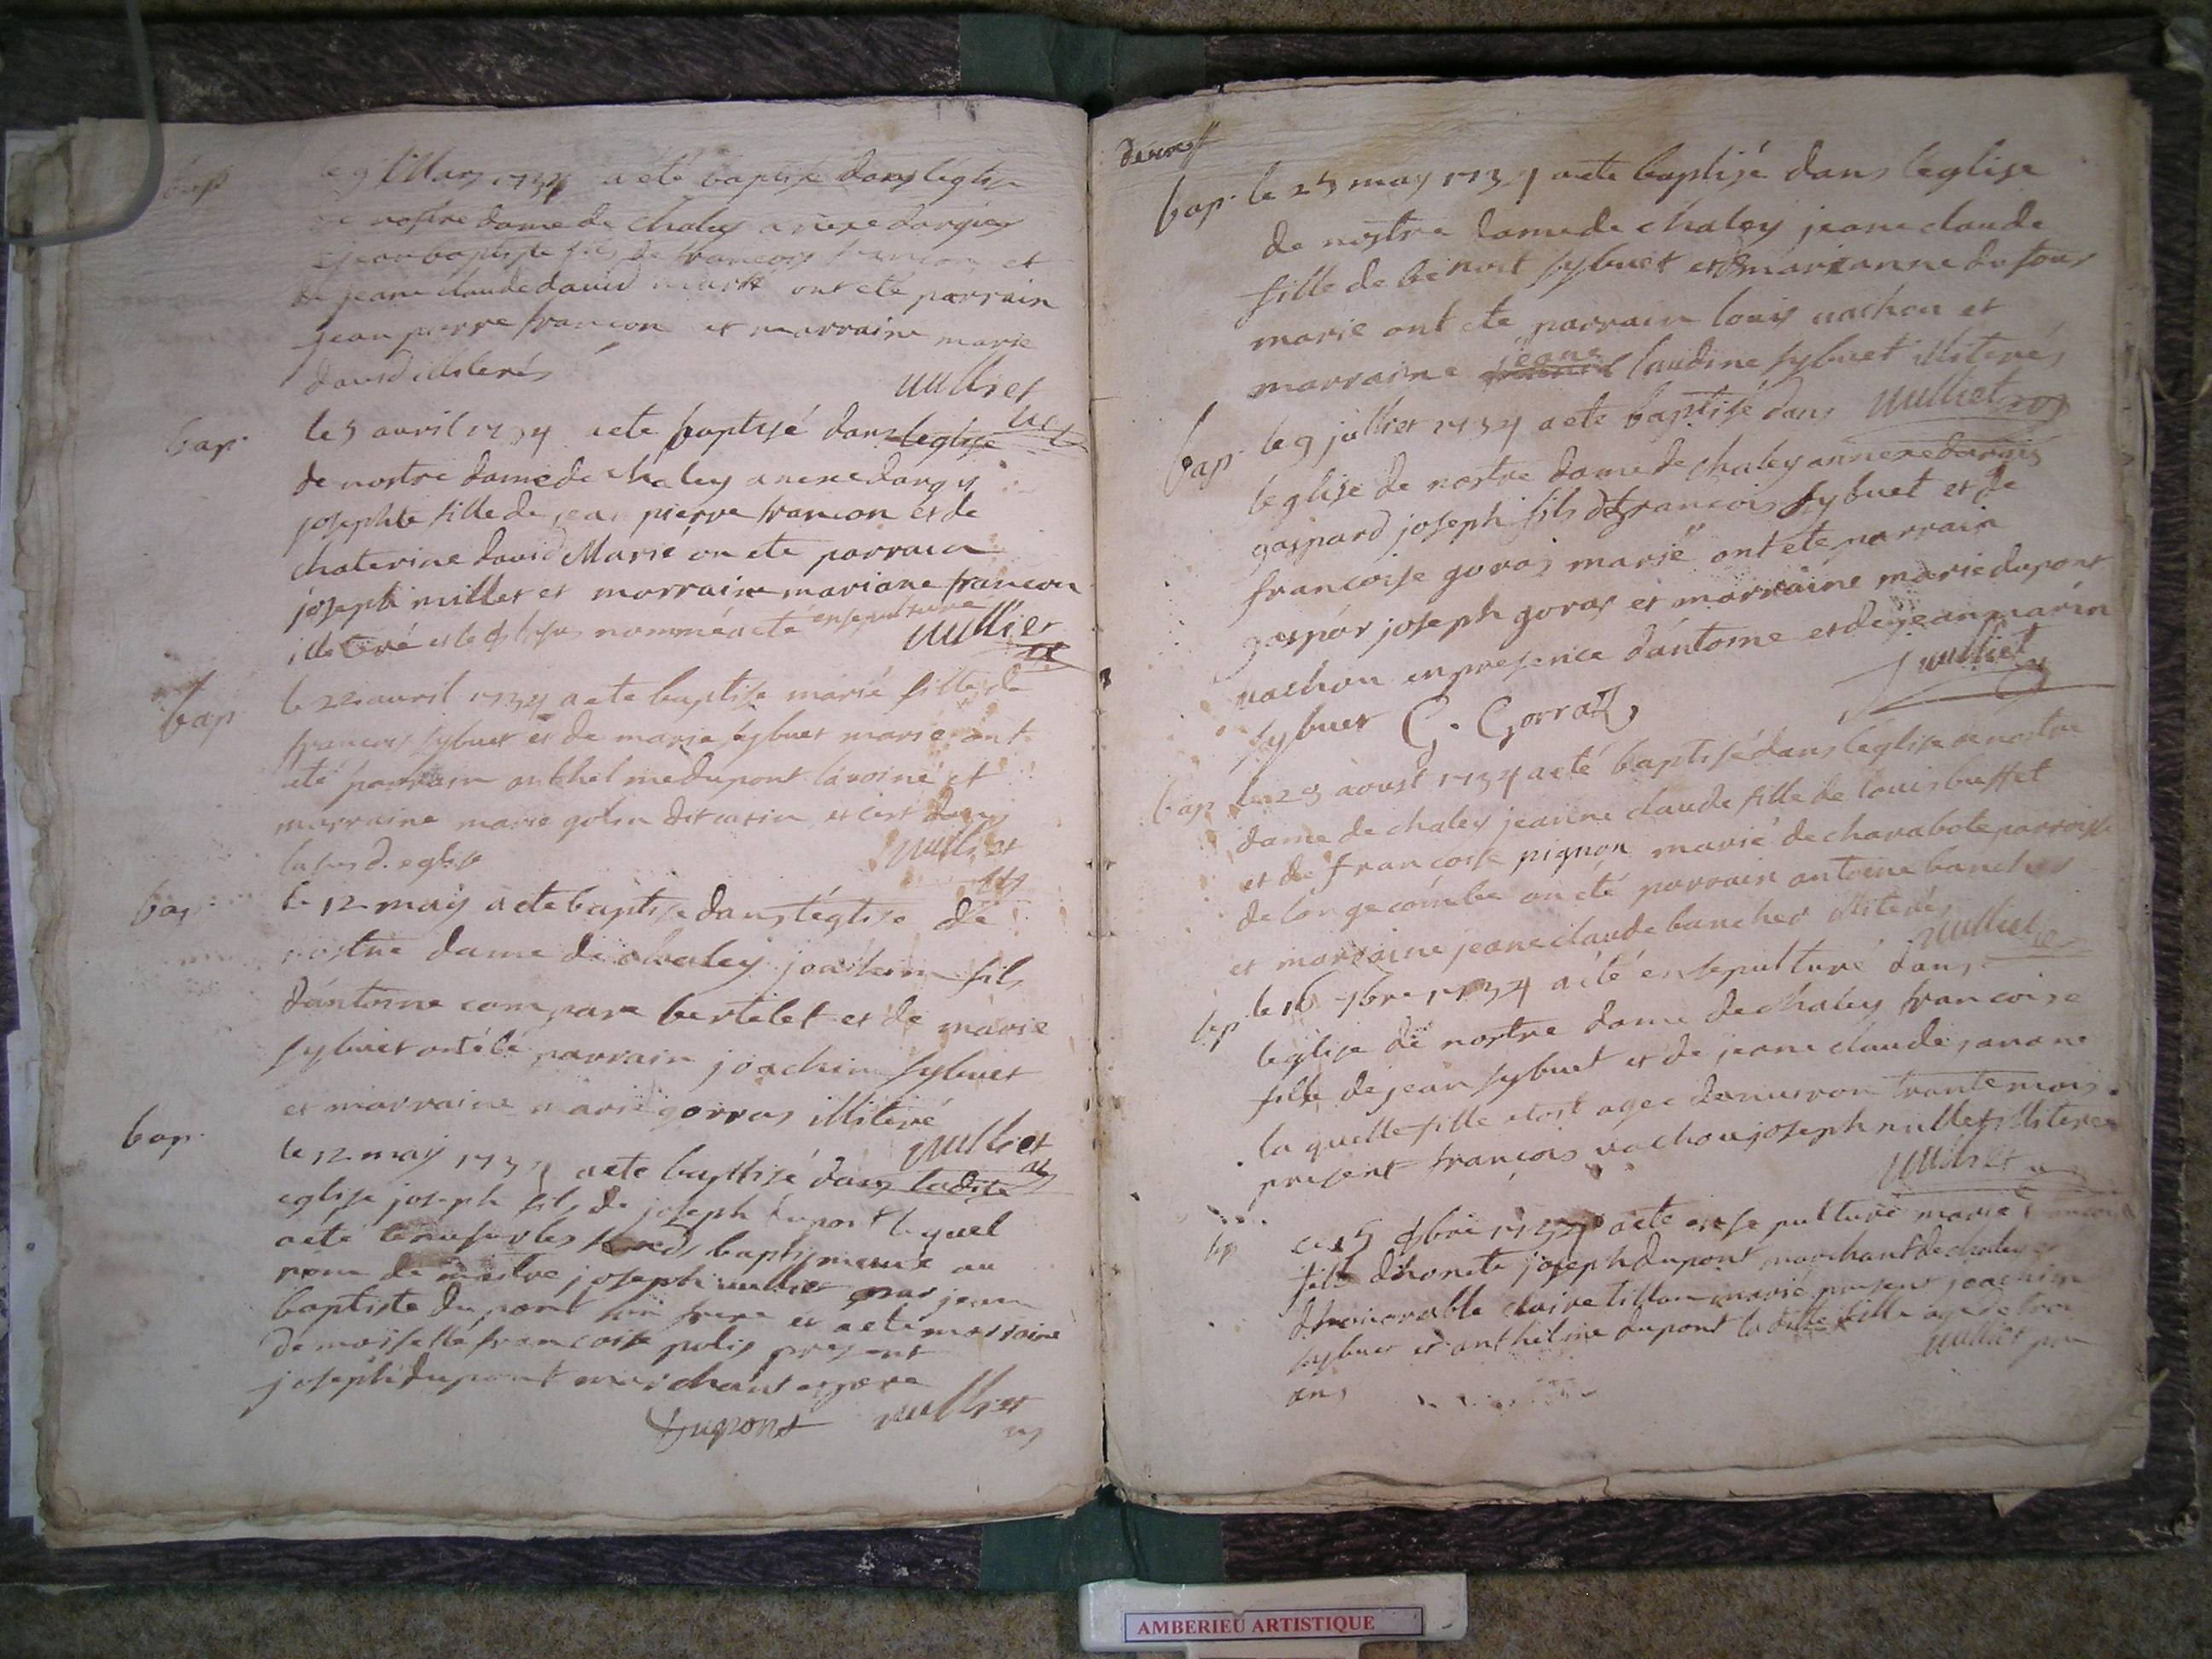 bap
le 9 Mars 1734 a été baptisé dans léglise
de nostre dame de chaley anexe dargis
jean baptiste fils de francois francon et
de jeane claude david mariés ont eté parrain
jean pierre francon et marraine marie
david illiterés
vulliet
bap
le 5 avril 1734 aete baptisé dans leglise
de nostre dame de chaley anexe dargis
josephte fille de jean pierre francon et de
chaterine david Marié on ete parrain
joseph millet et marraine mariane francon
illiteré et le susnommé aeté ensepulturé
vulliet
bap
le 22 avril 1734 aete baptisé marie fille de
francois sybuet et de marie sybuet marié ont
eté parrain anthelme dupont et
marraine marie et cest dans
la susd. eglise
vulliet
bap
le 12 may aete baptisé dans léglise de
nostre dame de chaley joachim fils
dántoine compare bertelet et de marie
sybuet ont été parrain joachim sybuet
et marraine marie gorras illiteré
vulliet
bap.
le 12 may 1734 aete baptisé dans ladite
eglise joseph fils de joseph dupont lequel
aeté tenu sur les fonds baptismaux au
nom de maitre joseph vulliet par jean
baptiste dupont son frere et aeté marraine
demoiselle francoise polis present
joseph dupont marchant et pere
Dupont vulliet
bap. le 25 may 1734 aete baptisé dans leglise
de nostre dame de chaley jeane claude
fille de benoit sybuet et marianne dufour
marie ont ete parrain louis vachon et
marraine jeane claudine sybuet illiterés
vulliet
bap. le 9 julliet 1734 aete baptisé dans
leglise de nostre dame de chaley annexe dargis
gaspard joseph fils de francois sybuet et de
francoise goras marié ont eté parrain
gaspar joseph goras et marraine marie dupont
vachon en presence dántoine et de jean marin
sybuet G. Gorraz
vulliet
bap le 29 aoust 1734 aeté baptisé dans léglise de nostre
dame de chaley jeanne claude fille de louis buffet
et de francoise pignon marié de charabote parroisse
de longecombe on eté parrain antoine bancher
et marraine jeane claude bancher illiterés
vulliet
sep. le 16 7bre 1734 aété ensepulturé dans
leglise de nostre dame de chaley francoise
fille de jean sybuet et de jeane claude
laquelle fille etoit agée denviron trante mois
present françois vachon joseph millet illiteres
vulliet
sep
ce 15 8bre 1734 aete ensepulturé marie
fille dhonete joseph dupont marchant de chaley et
dhonorable claire tillon marié present joachim
sybuet et anthelme dupont ladite fille agé de troi
ans
vulliet
AMBERIEU ARTISTIQUE